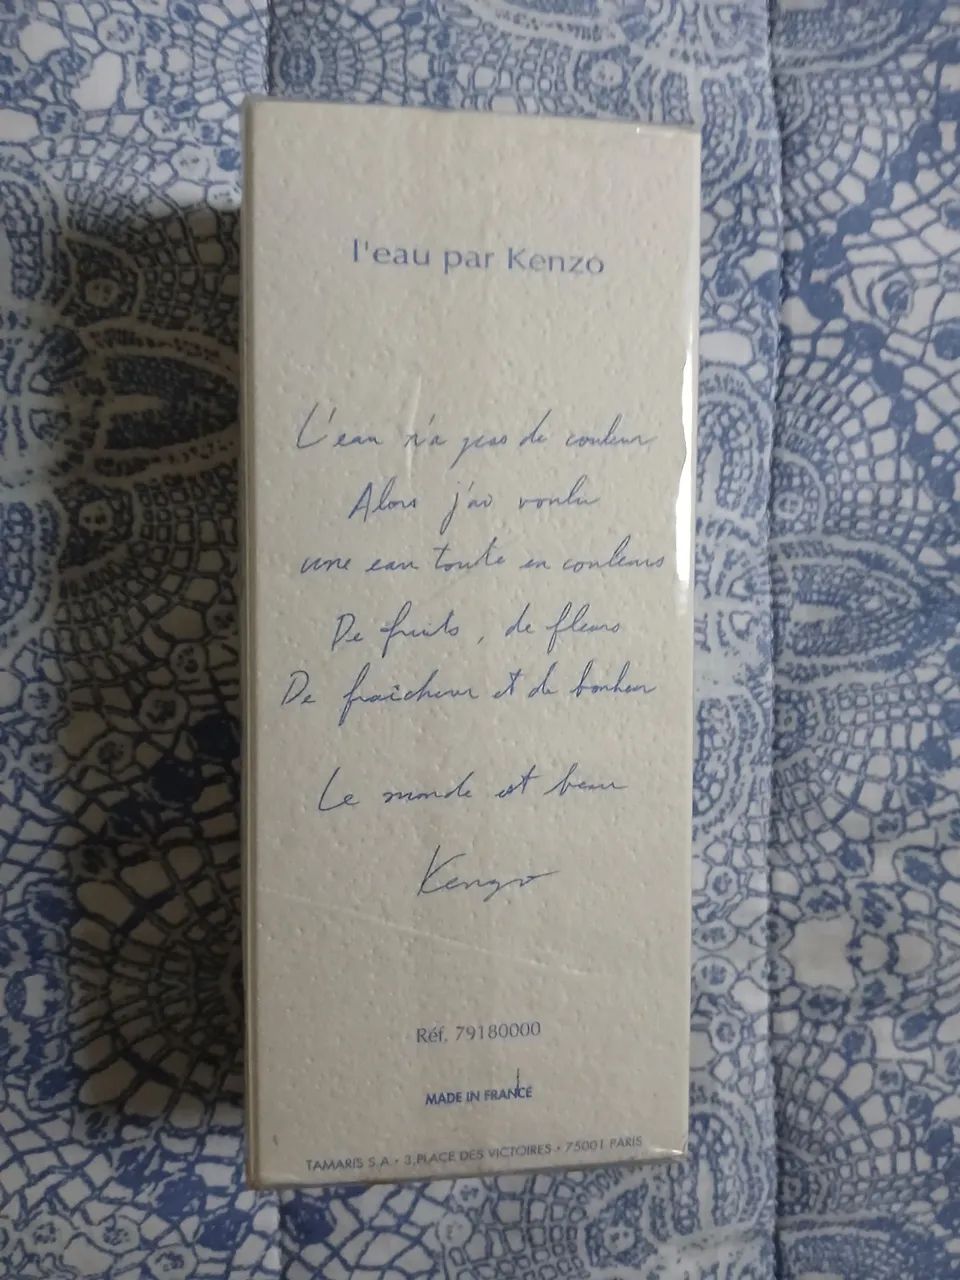 l'eau par Kenzo
L'eau n'a pas de couleur
Alors j'ai voulu
une eau toute en couleurs
De fruits, de fleurs
De fraîcheur et de bonheur
Le monde est beau
Kenzo
Réf. 79180000
MADE IN FRANCE
TAMARIS S.A • 3, PLACE DES VICTOIRES • 75001 PARIS